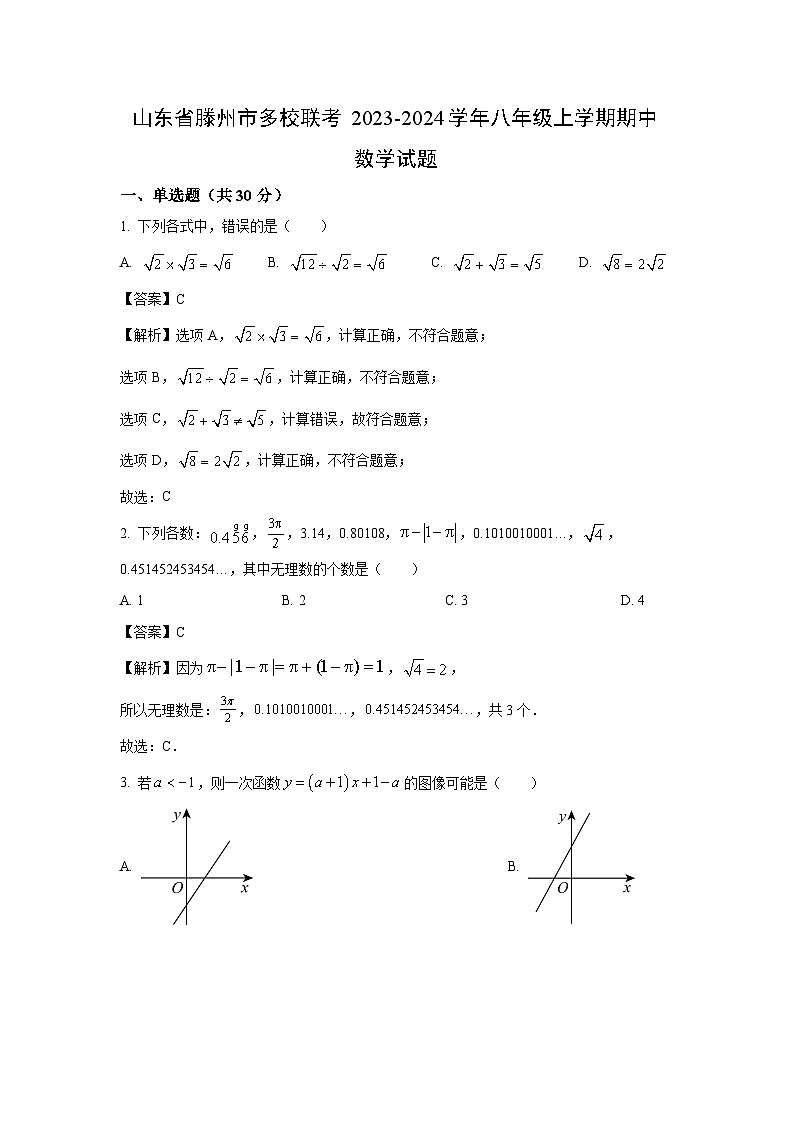 山东省滕州市多校联考 2023-2024 学年八年级上学期期中
数学试题
一、单选题（共 30 分）
1. 下列各式中，错误的是（　　）
A. √2 × √3 = √6　B. √12 ÷ √2 = √6　C. √2 + √3 = √5　D. √8 = 2√2
【答案】C
【解析】选项 A，√2 × √3 = √6，计算正确，不符合题意；
选项 B，√12 ÷ √2 = √6，计算正确，不符合题意；
选项 C，√2 + √3 ≠ √5，计算错误，故符合题意；
选项 D，√8 = 2√2，计算正确，不符合题意；
故选：C
2. 下列各数：0.4 5^g 6^g，3π/2，3.14，0.80108，π−|1−π|，0.1010010001…，√4，
0.451452453454…，其中无理数的个数是（　　）
A. 1　B. 2　C. 3　D. 4
【答案】C
【解析】因为 π−|1−π|= π+(1−π)=1，√4 = 2，
所以无理数是：3π/2，0.1010010001…，0.451452453454…，共 3 个．
故选：C．
3. 若 a < −1，则一次函数 y = (a+1)x+1−a 的图像可能是（　　）
A. y O x　B. y O x